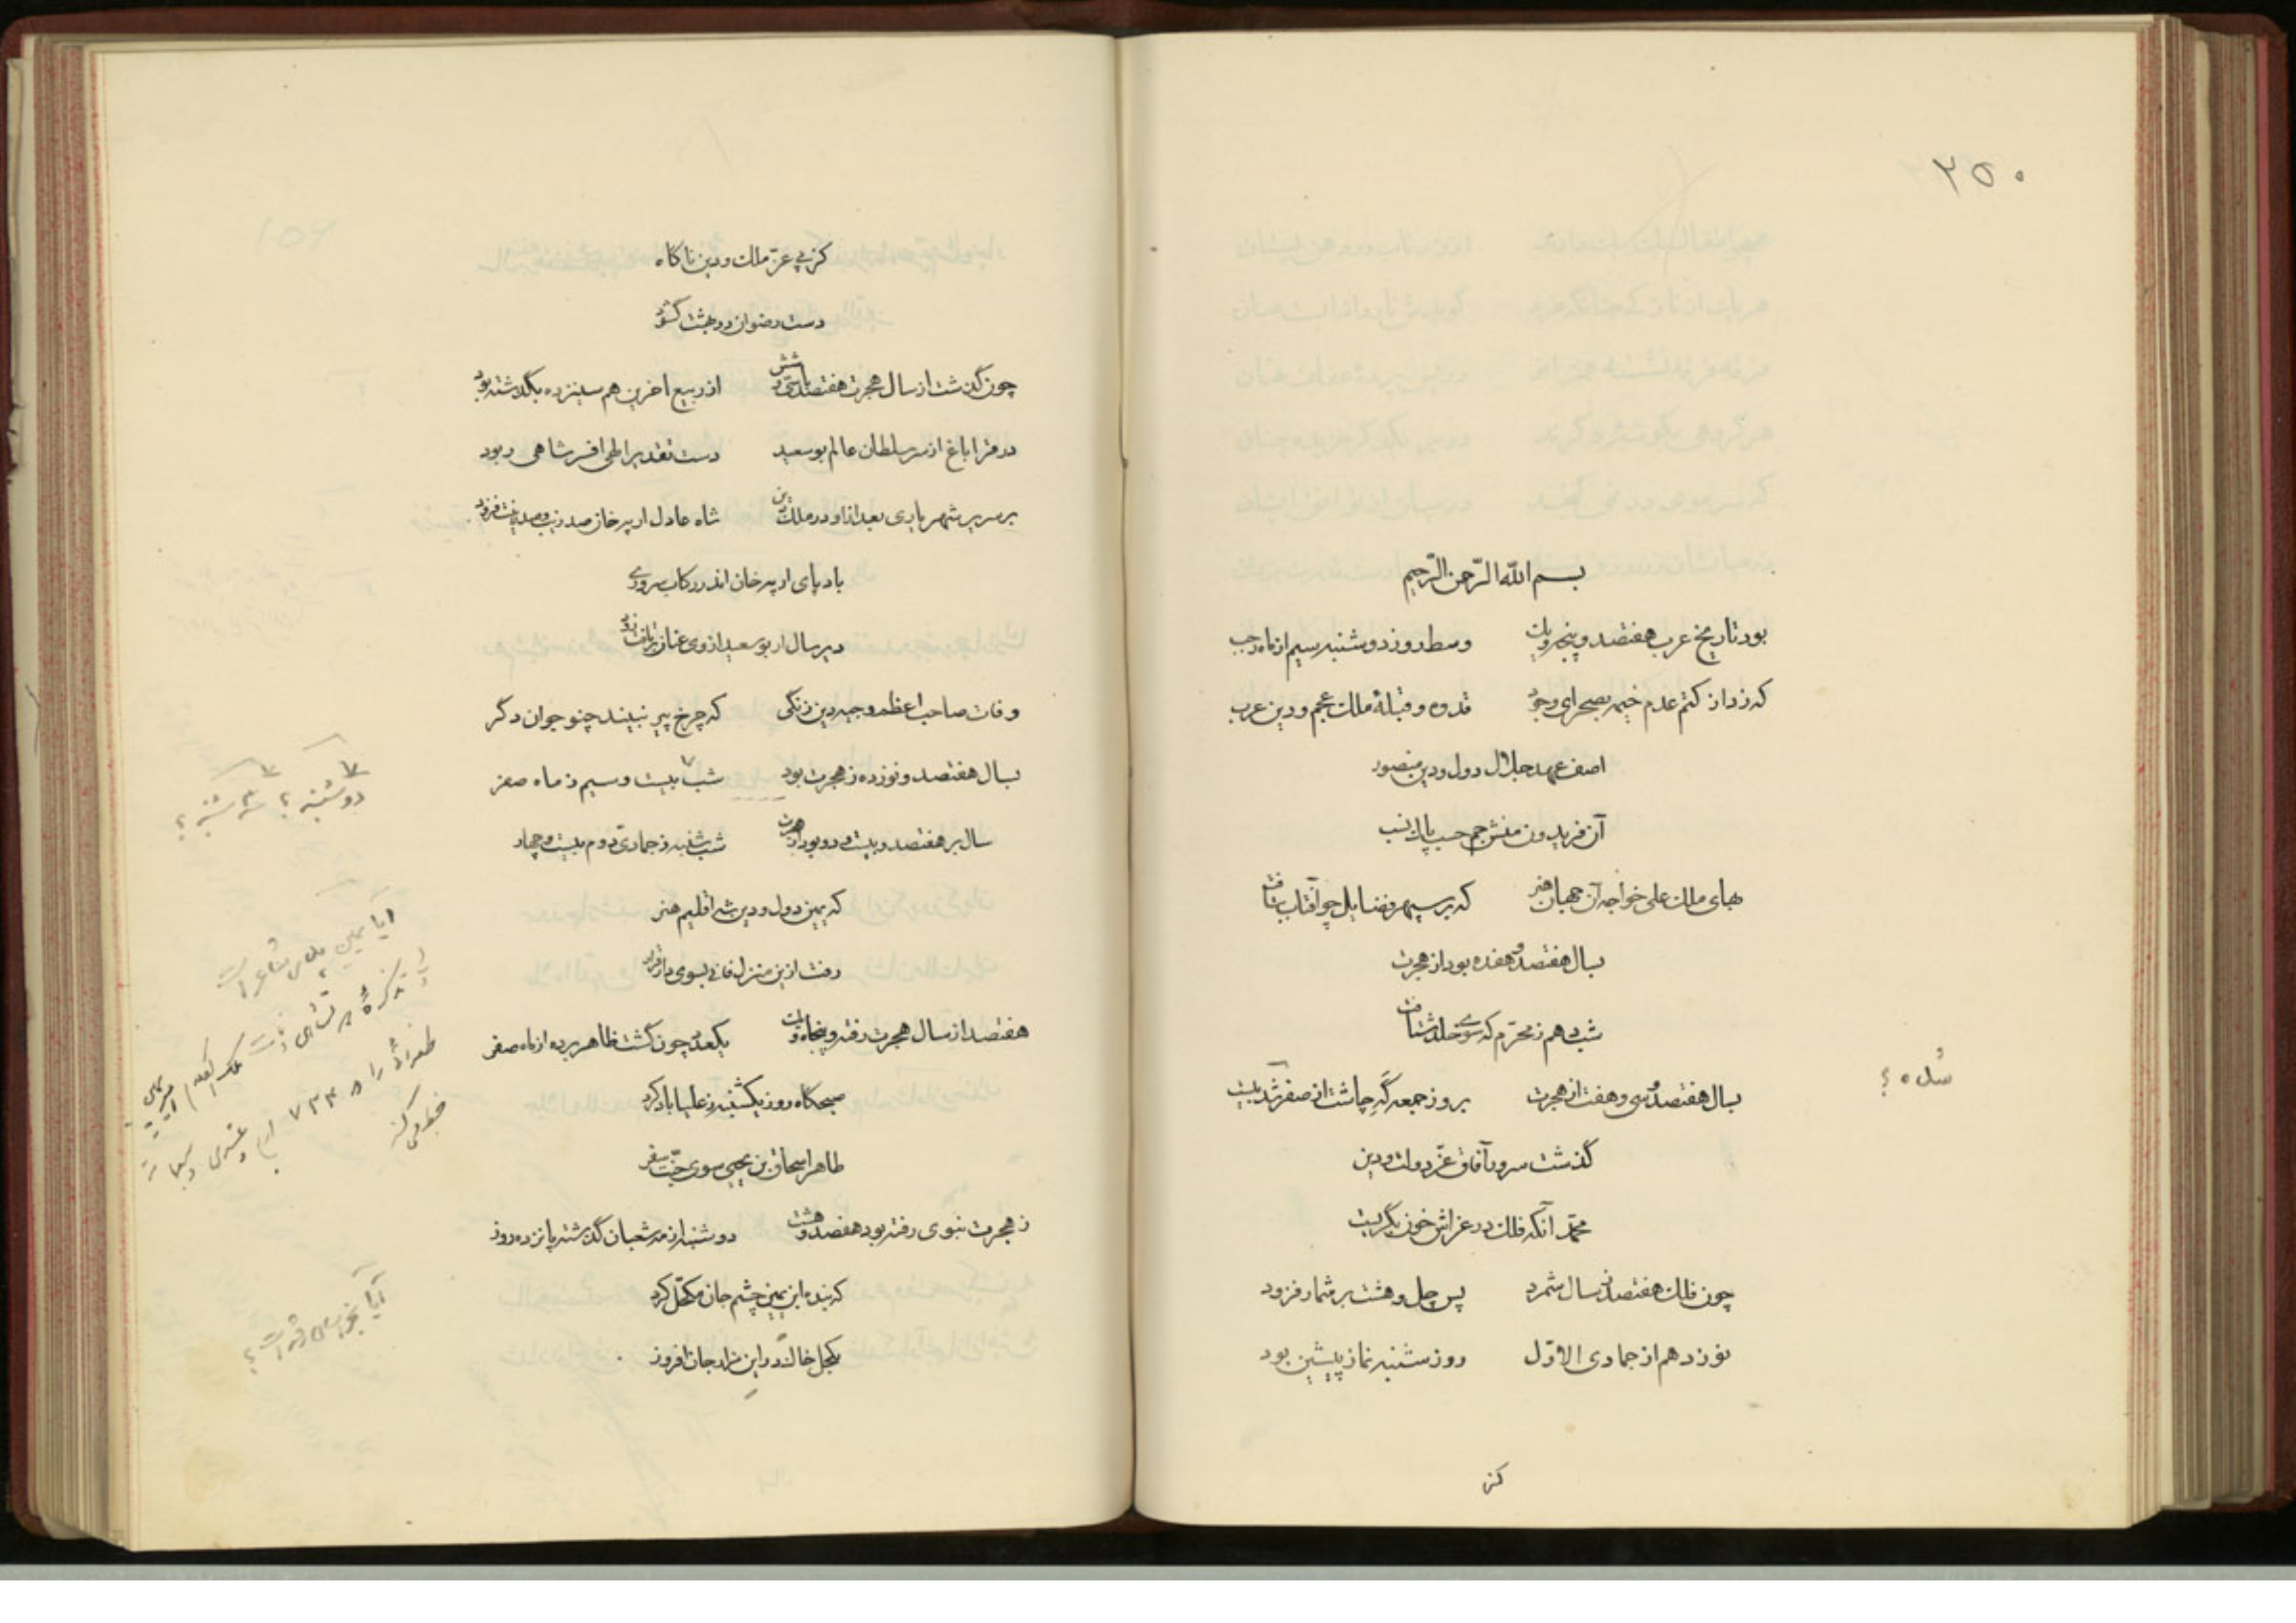 ۲۵۰
بسم الله الرّحمن الرّحیم
بود تاریخ عرب هفتصد و پنجه و یک وسط روز دوشنبه سیم از ماه رجب
که زد از کتم عدم خیمه بصحرای وجود قدوه و قبلهٔ ملک عجم و دین عرب
اصف عهد جلال دول و دین منصور
آن فریدون منش جم حسب پاک نسب
هبای ملک علی خواجه آن جهان هنر که بر سپهر فضایل چو آفتاب بتافت
بسال هفتصد و هفده بود از هجرت
شب دهم ز محرّم که سوی خلد شتافت
بسال هفتصد و سی و هفت از هجرت بروز جمعه گه چاشت از صفر شد بیست
گذشت سرور آفاق عزّ دولت و دین
محمّد آنکه فلک در عزاش خون بگریست
چون فلک هفتصد ز سال شمرد پس چل و هشت بر شمار فزود
نوزدهم از جمادی الاوّل روز شنبه نماز پیشین بود
کز
کز پی عزّ ملک و دین ناگاه
دست رضوان در بهشت گشود
چون گذشت از سال هجرت هفتصد با سی و شش از ربیع اخرین هم سیزده بگذشته بود
در قراباغ از سر سلطان عالم بوسعید دست تقدیر الهی افسر شاهی ربود
بر سریر شهریاری بعد از او در ملک شاه عادل ارپه خان صد زیب و صد زینت فزود
باد پای ارپه خان اندر رکاب سروری
دیر سال ار بوسعید از وی عنان برتافت زود
وفات صاحب اعظم وجیه دین زنگی که چرخ پیر نبیند چنو جوان دگر
بسال هفتصد و نوزده ز هجرت بود شب بیست و سیم ز ماه صفر
دوشنبه ؟ سه شنبه ؟
سال بر هفتصد و بیست و دو بود از هجرت شب شنبه ز جمادیّ دوم بیست و چهار
که یمین دول و دین شه اقلیم هنر
رفت ازین منزل فانی بسوی دار قرار
هفتصد از سال هجرت رفته و پنجاه و یک بعد چون گشت ظاهر برده از ماه صفر
صبحگاه روز یکشنبه ز علیاباد کرد
طاهر اسحاق بن یحیی سوی جنّت سفر
ز هجرت نبوی رفته بود هفتصد و هشت دوشنبه از مه شعبان گذشته پانزده روز
که بنده ابن یمین چشم جان مکحّل کرد
بکحل خاک در این مزار جان افروز